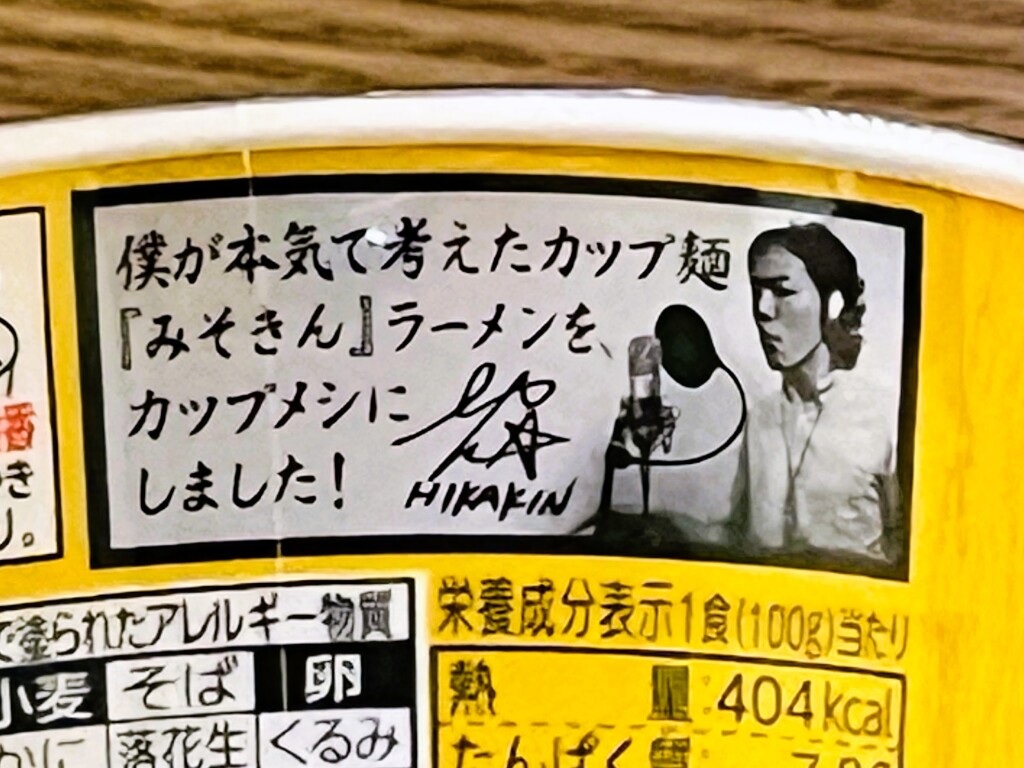 僕が本気で考えたカップ麺
『みそきん』ラーメンを、
カップメシに
しました!
HIKAKIN
き
り。
で塗られたアレルギー物質
小麦 そば 卵
かに 落花生 くるみ
栄養成分表示1食(100g)当たり
熱量:404kcal
たんぱく質